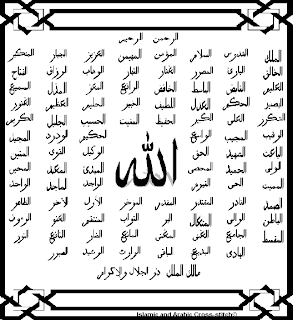 الرحمن الرحيم
الملك القدوس السلام المؤمن المهيمن العزيز الجبار المتكبر
الخالق البارئ المصور الغفار القهار الوهاب الرزاق الفتاح
العليم القابض الباسط الخافض الرافع المعز المذل السميع
البصير الحكم العدل اللطيف الخبير الحليم العظيم الغفور
الشكور العلي الكبير الحفيظ المقيت الحسيب الجليل الكريم
الرقيب المجيب الواسع الحكيم الودود المجيد
الباعث الشهيد الحق الوكيل القوي المتين
الله
الولي الحميد المحصي المبدئ المعيد المحيي
المميت الحي القيوم الواجد الماجد الواحد
الصمد القادر المقتدر المقدم المؤخر الأول الآخر الظاهر
الباطن الوالي المتعال البر التواب المنتقم العفو الرؤوف
المقسط الجامع الغني المغني المانع الضار النافع النور
الهادي البديع الباقي الوارث الرشيد الصبور
مالك الملك ذو الجلال والإكرام
Islamic and Arabic Cross-stitch©